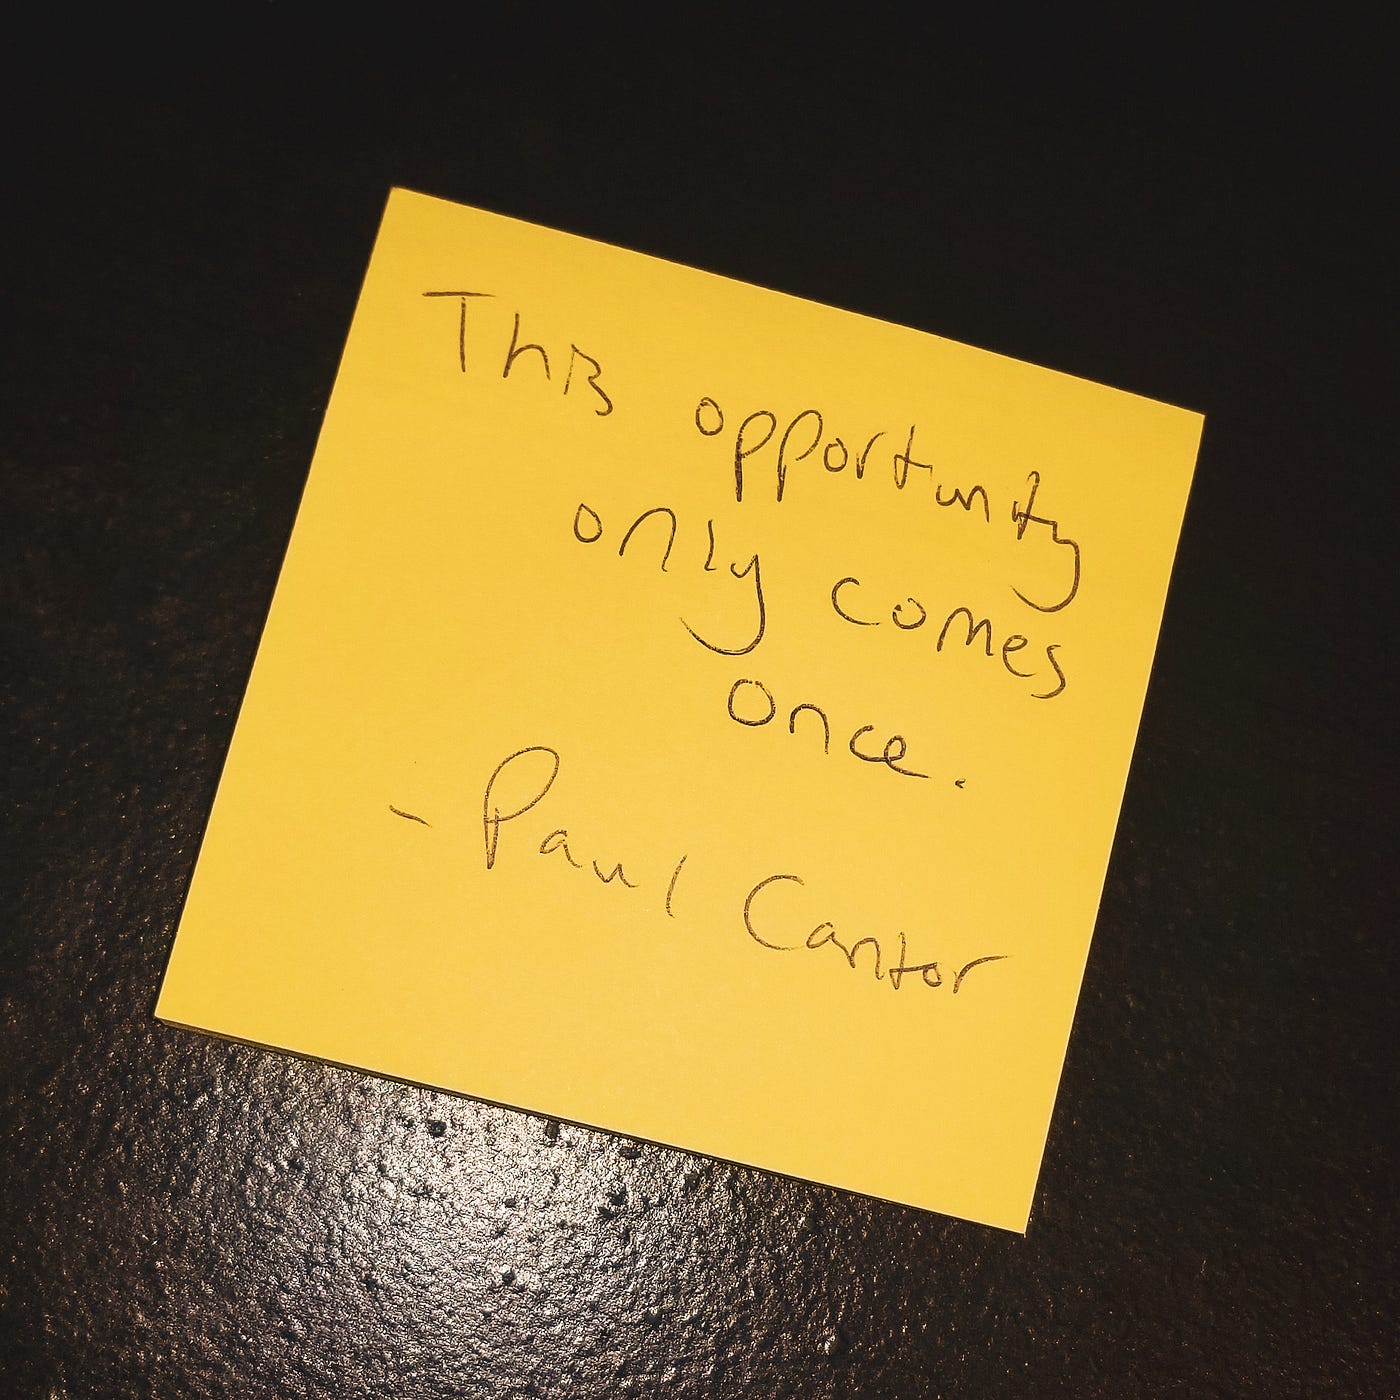 This opportunity
only comes
once.
- Paul Cantor